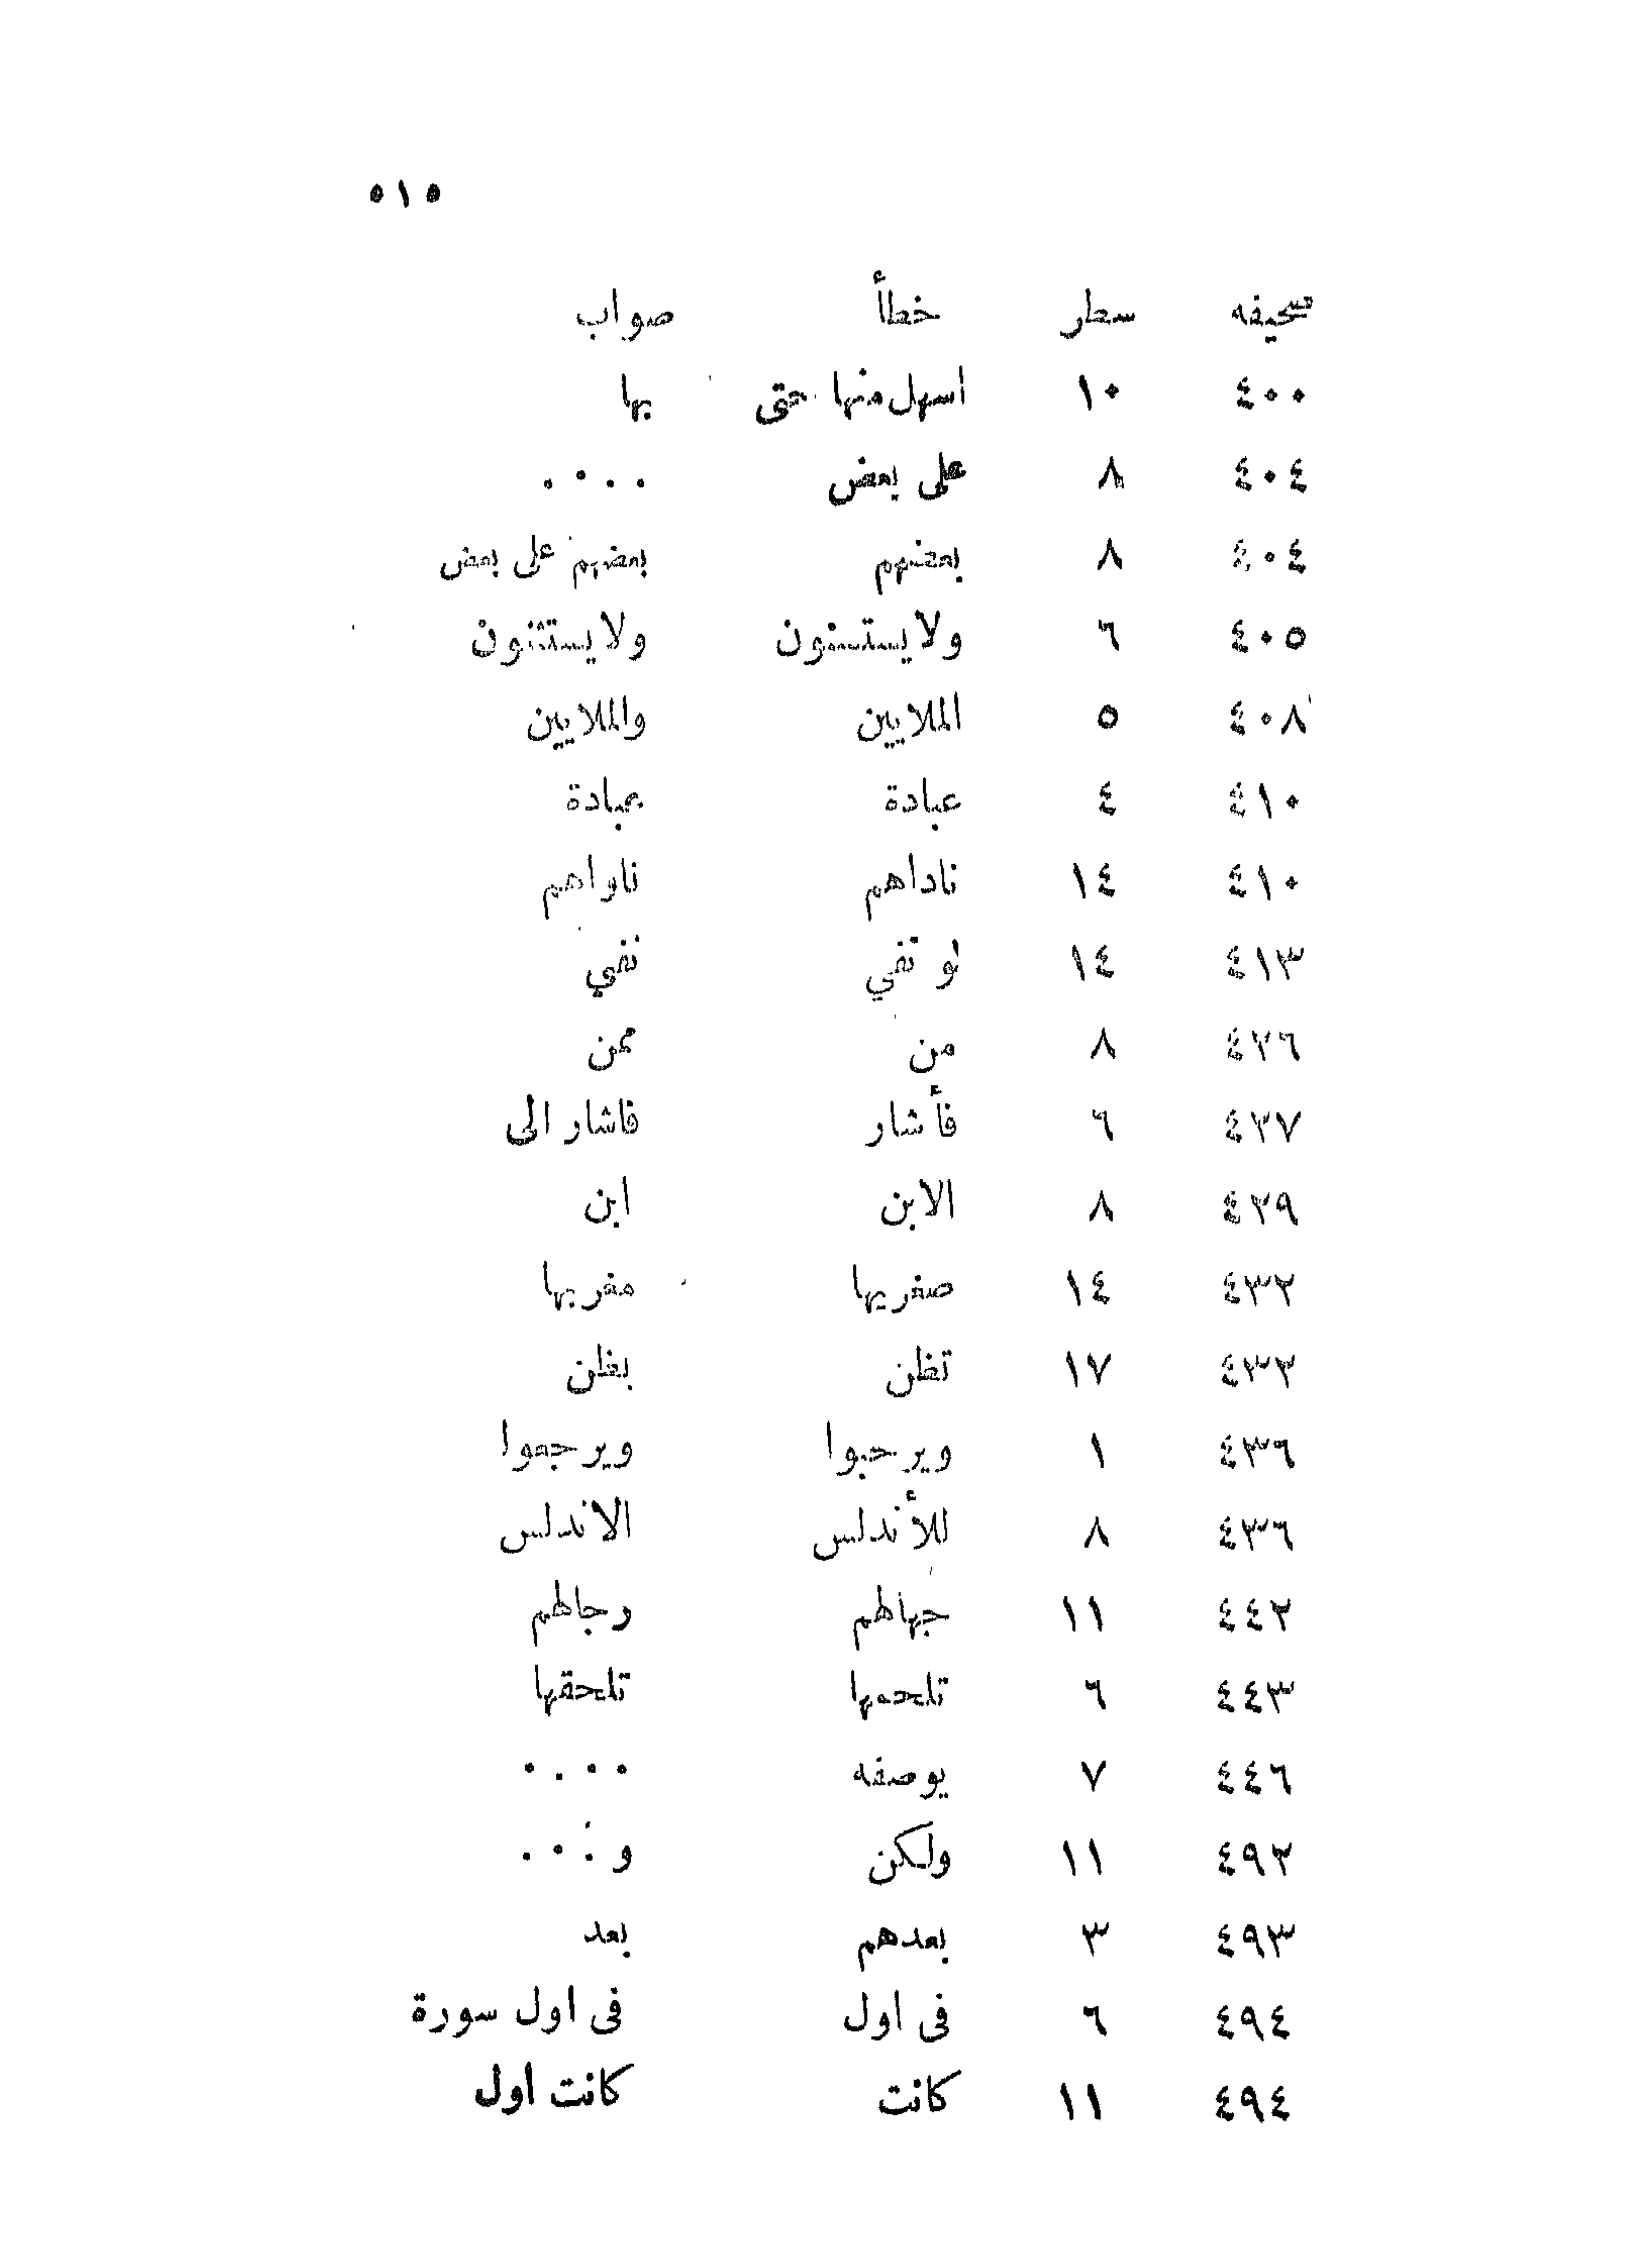 ٥١٥
صحيفه سطر خطأ صواب
٤٠٠ ١٠ اسهل منها حتى بها
٤٠٤ ٨ على بعض ....
٤٠٤ ٨ بعضهم بعضهم على بعض
٤٠٥ ٦ ولا يستسنون ولا يستثنون
٤٠٨ ٥ الملايين والملايين
٤١٠ ٤ عبادة بعبادة
٤١٠ ١٤ ناداهم ناواهم
٤١٣ ١٤ لو نفي نفي
٤٢٦ ٨ من ممن
٤٢٧ ٦ فأشار فاشار الى
٤٢٩ ٨ الابن ابن
٤٣٢ ١٤ صغربها مغربها
٤٣٢ ١٧ تظن بظن
٤٣٦ ١ ويرحبوا ويرجعوا
٤٣٦ ٨ للأندلس الاندلس
٤٤٢ ١١ جهالهم رجالهم
٤٤٣ ٦ تلحها تلحقها
٤٤٦ ٧ يوصفه ....
٤٩٢ ١١ ولكن و ....
٤٩٣ ٣ بعدهم بعد
٤٩٤ ٦ فى اول فى اول سورة
٤٩٤ ١١ كانت كانت اول